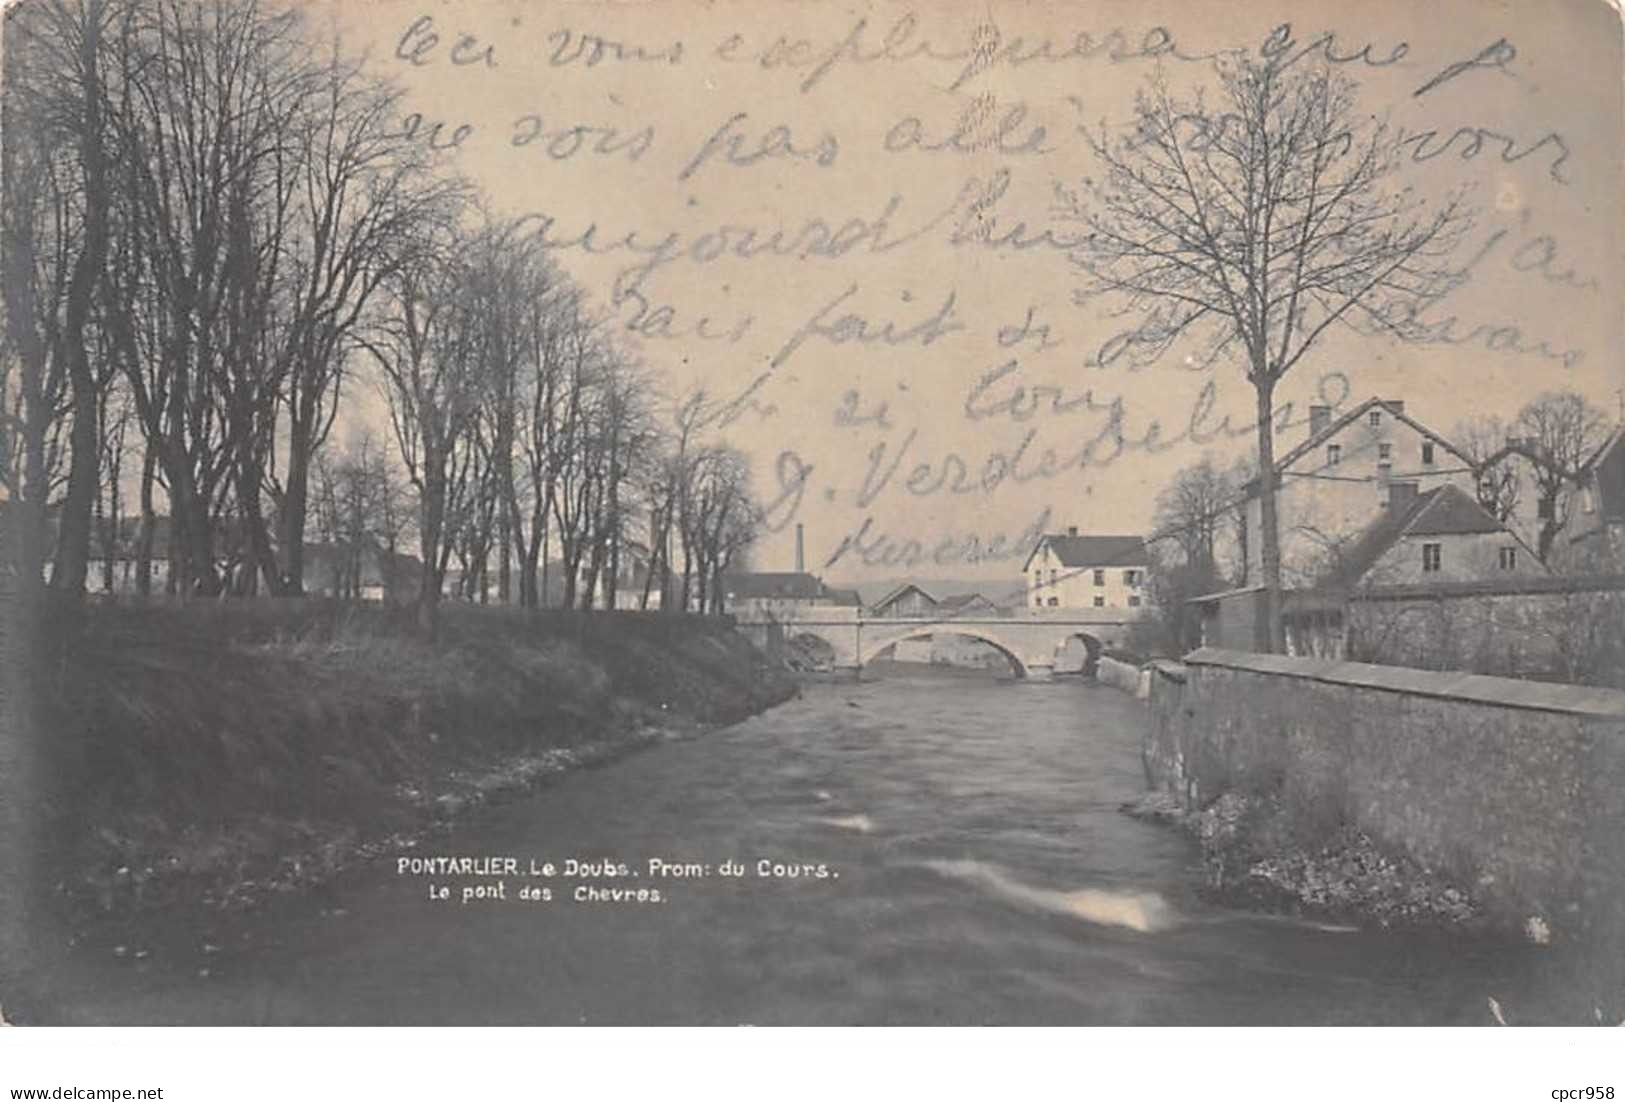 Ceci vous expliquera que je
ne sois pas allé vous voir
aujourd'hui
rais fait si
si
J. Verdebelisle
PONTARLIER. Le Doubs. Prom: du Cours.
Le pont des Chevres.
www.delcampe.net
cpcr958